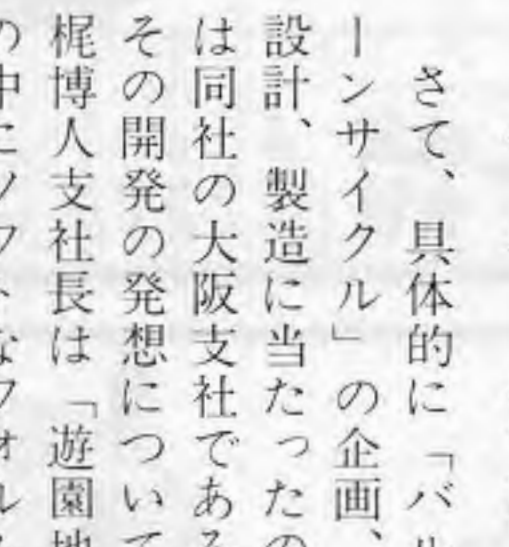 さて、具体的に「バル
ーンサイクル」の企画、
設計、製造に当たったの
は同社の大阪支社である
その開発の発想について
梶博人支社長は「遊園地
の中にソフトなフォルム